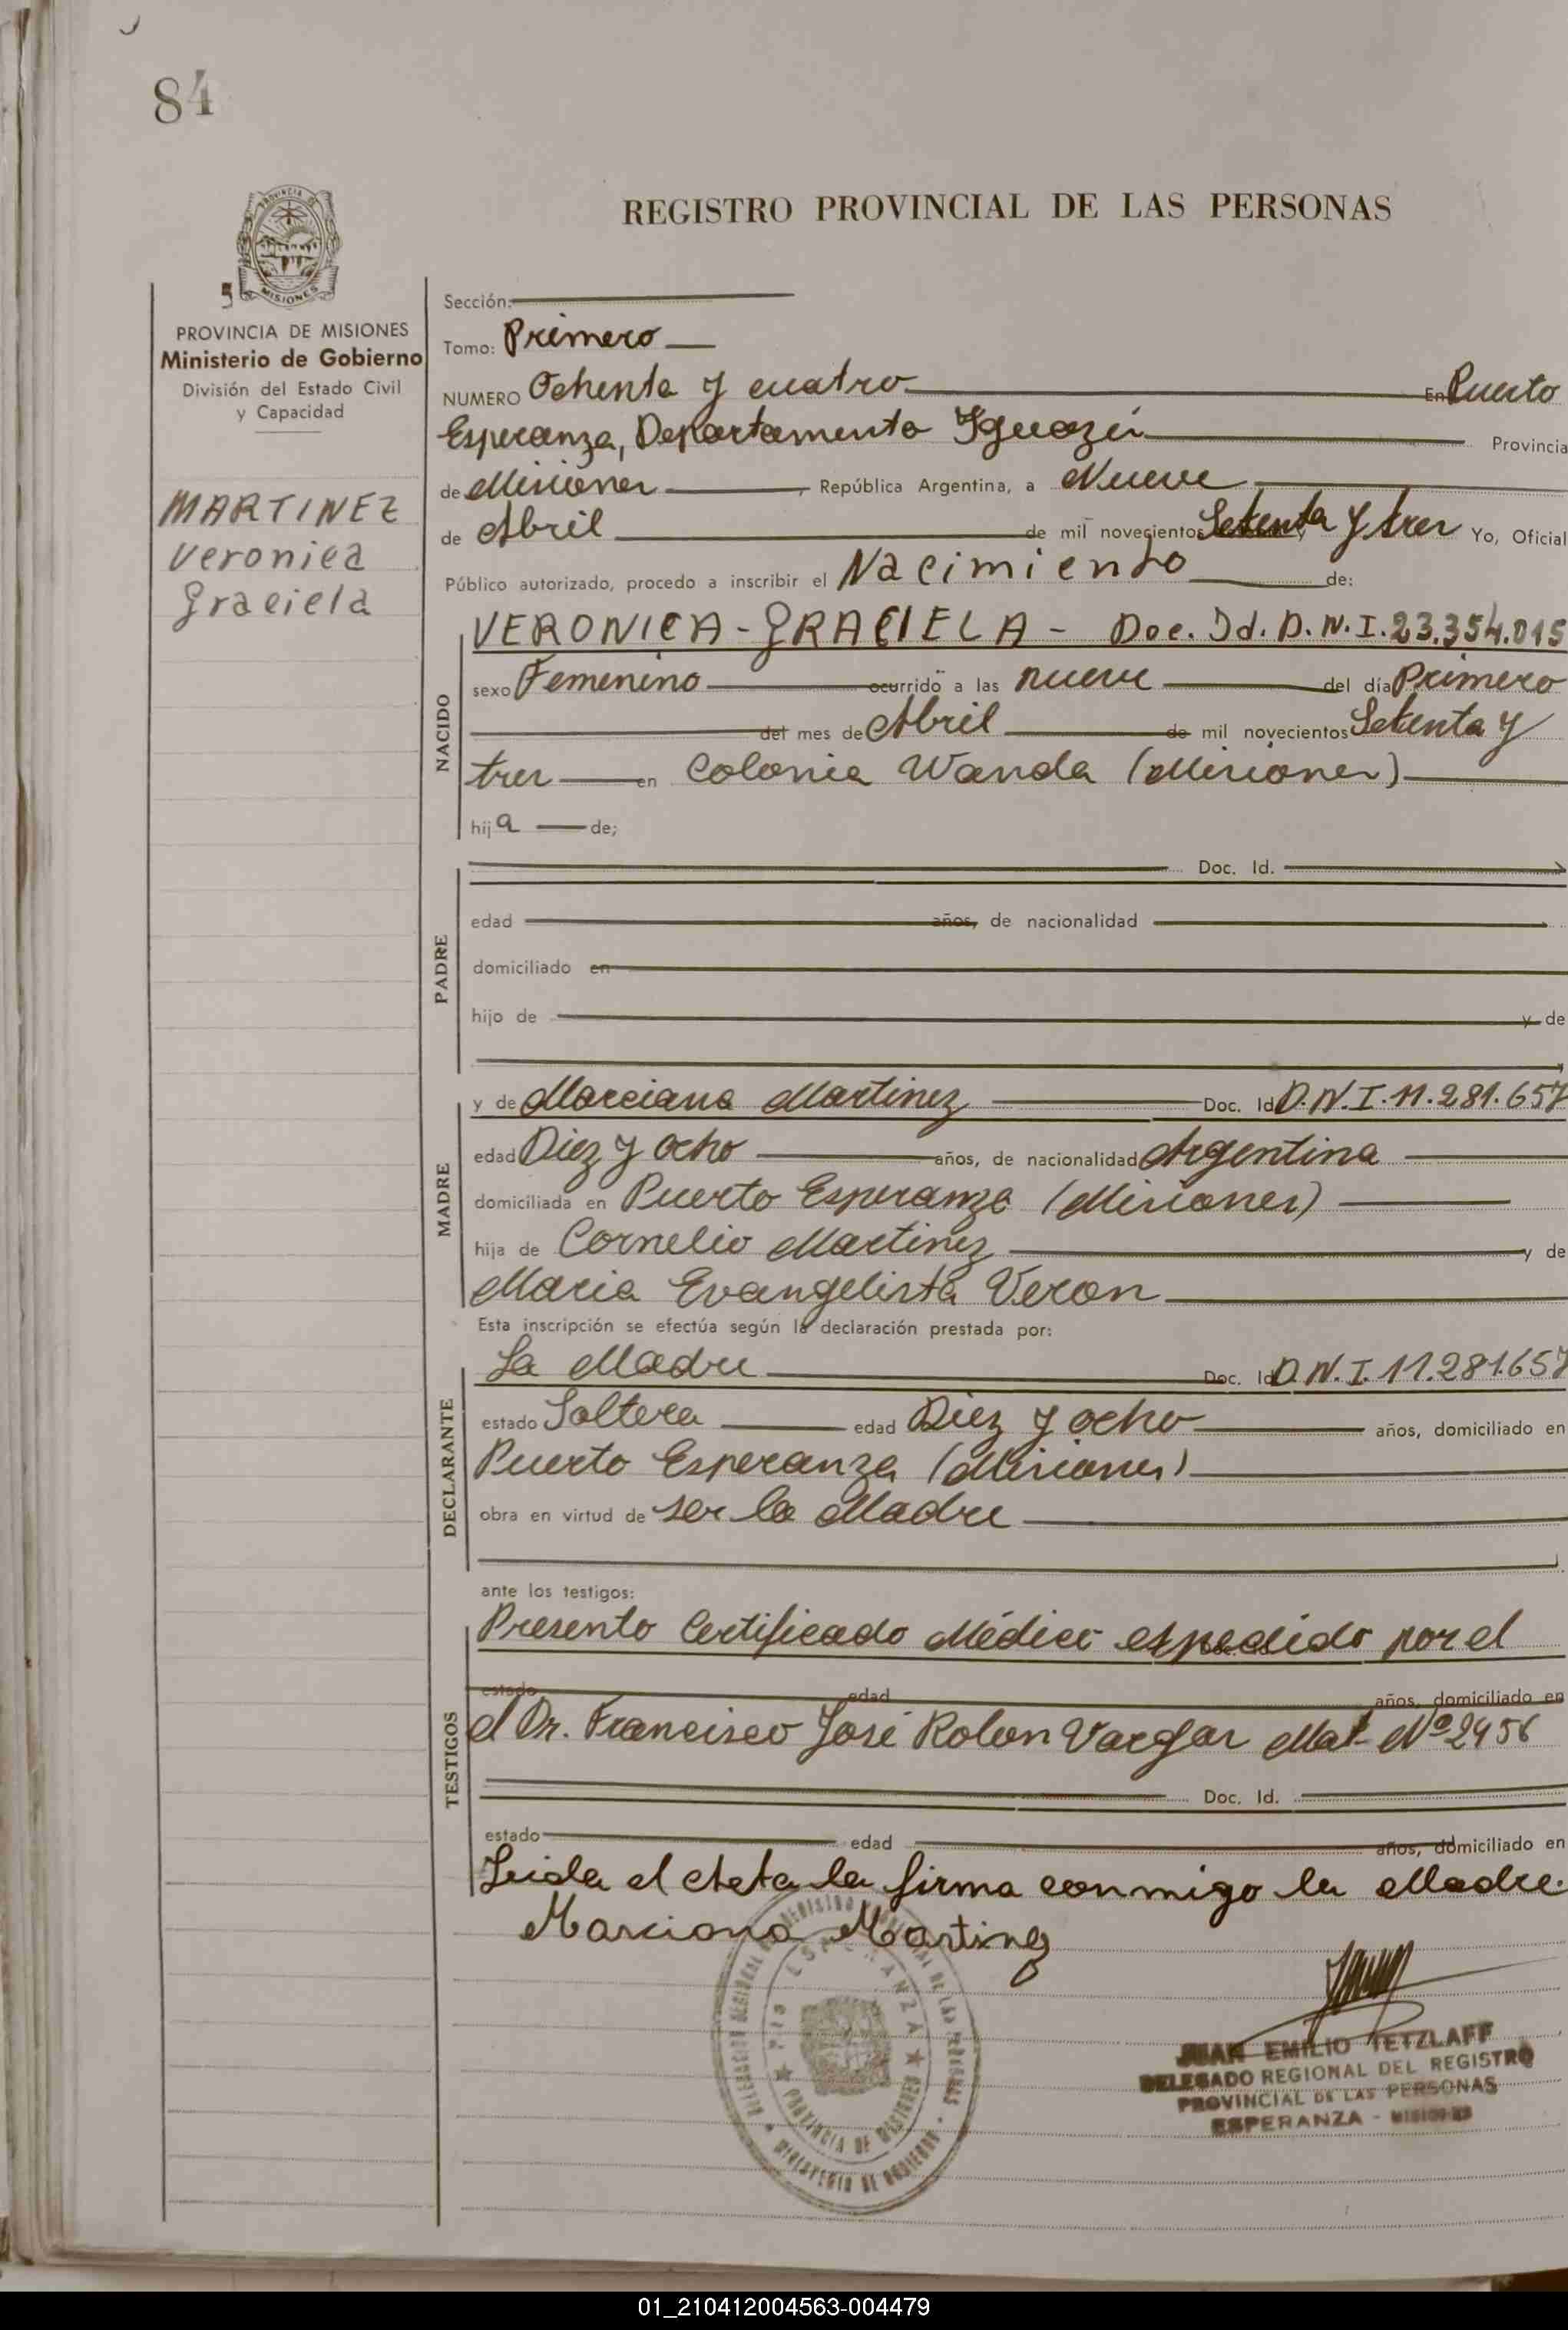 84
REGISTRO PROVINCIAL DE LAS PERSONAS
MISIONES
5
PROVINCIA DE MISIONES
Ministerio de Gobierno
División del Estado Civil
y Capacidad
MARTINEZ
Veronica
Graciela
Sección:
Tomo: Primero
NUMERO Ochenta y cuatro En Puerto
Esperanza, Departamento Iguazú Provincia
de Misiones, República Argentina, a Nueve
de Abril de mil novecientos Setenta y tres Yo, Oficial
Público autorizado, procedo a inscribir el Nacimiento de:
NACIDO
VERONICA-GRACIELA - Doc. Id. D.N.I. 23.354.015
sexo Femenino ocurrido a las nueve del día Primero
del mes de Abril de mil novecientos Setenta y
tres en Colonia Wanda (Misiones)
hija de;
PADRE
Doc. Id.
edad años, de nacionalidad
domiciliado en
hijo de y de
MADRE
y de Marciana Martinez Doc. Id D.N.I. 11.281.657
edad Diez y ocho años, de nacionalidad Argentina
domiciliada en Puerto Esperanza (Misiones)
hija de Cornelio Martinez y de
Maria Evangelista Veron
Esta inscripción se efectúa según la declaración prestada por:
DECLARANTE
La Madre Doc. Id D.N.I. 11.281.657
estado Soltera edad Diez y ocho años, domiciliado en
Puerto Esperanza (Misiones)
obra en virtud de ser la Madre
ante los testigos:
TESTIGOS
Presento Certificado Médico espedido por el
estado edad años, domiciliado en
el Dr. Francisco José Rolon Vargas Mat. Nº 2456
Doc. Id.
estado edad años, domiciliado en
Leida el Acta la firma conmigo la Madre.
Marciana Martinez
ESPERANZA
PROVINCIA DE MISIONES
MINISTERIO DE GOBIERNO
JUAN EMILIO TETZLAFF
DELEGADO REGIONAL DEL REGISTRO
PROVINCIAL DE LAS PERSONAS
ESPERANZA - MISIONES
01_210412004563-004479